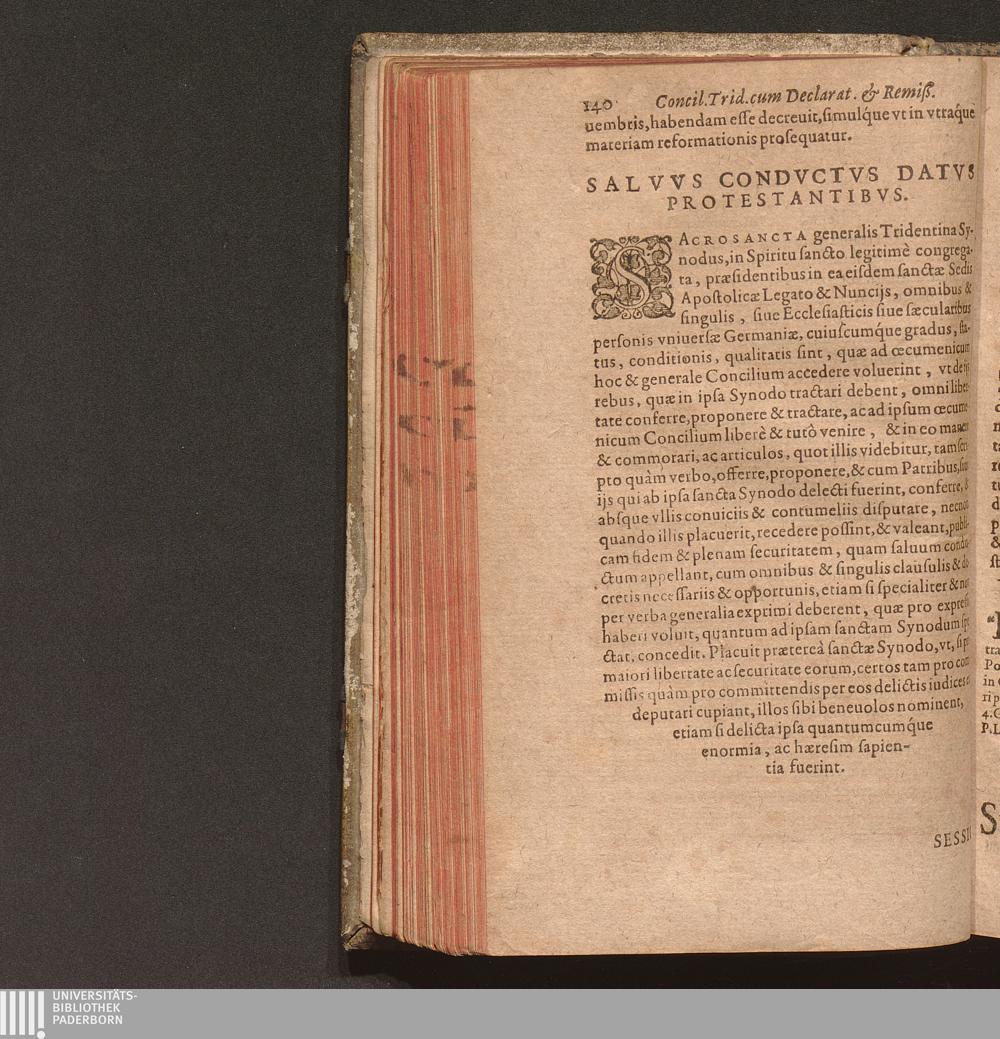 140 Concil. Trid. cum Declarat. & Remiſſ.
uembris, habendam eſſe decreuit, ſimulq́ue vt in vtraq́ue
materiam reformationis proſequatur.
SALVVS CONDVCTVS DATVS
PROTESTANTIBVS.
SACROSANCTA generalis Tridentina Sy-
nodus, in Spiritu ſancto legitimè congrega-
ta, præſidentibus in ea eiſdem ſanctæ Sedis
Apoſtolicæ Legato & Nuncijs, omnibus &
ſingulis, ſiue Eccleſiaſticis ſiue ſæcularibus
perſonis vniuerſæ Germaniæ, cuiuſcumq́ue gradus, ſta-
tus, conditionis, qualitatis ſint, quæ ad œcumenicum
hoc & generale Concilium accedere voluerint, vt de ijs
rebus, quæ in ipſa Synodo tractari debent, omni liber-
tate conferre, proponere & tractare, ac ad ipſum œcume-
nicum Concilium liberè & tutò venire, & in eo manere
& commorari, ac articulos, quot illis videbitur, tam ſcri-
pto quàm verbo, offerre, proponere, & cum Patribus, ſiue
ijs qui ab ipſa ſancta Synodo delecti fuerint, conferre, &
abſque vllis conuiciis & contumeliis diſputare, necnon
quando illis placuerit, recedere poſſint, & valeant, publi-
cam fidem & plenam ſecuritatem, quam ſaluum condu-
ctum appellant, cum omnibus & ſingulis clauſulis & de-
cretis neceſſariis & opportunis, etiam ſi ſpecialiter & non
per verba generalia exprimi deberent, quæ pro expreſſis
haberi voluit, quantum ad ipſam ſanctam Synodum ſpe-
ctat, concedit. Placuit prætereà ſanctæ Synodo, vt, ſi pro
maiori libertate ac ſecuritate eorum, certos tam pro com-
miſſis quàm pro committendis per eos delictis iudices
deputari cupiant, illos ſibi beneuolos nominent,
etiam ſi delicta ipſa quantumcumq́ue
enormia, ac hæreſim ſapien-
tia fuerint.
SESSI
UNIVERSITÄTS-
BIBLIOTHEK
PADERBORN